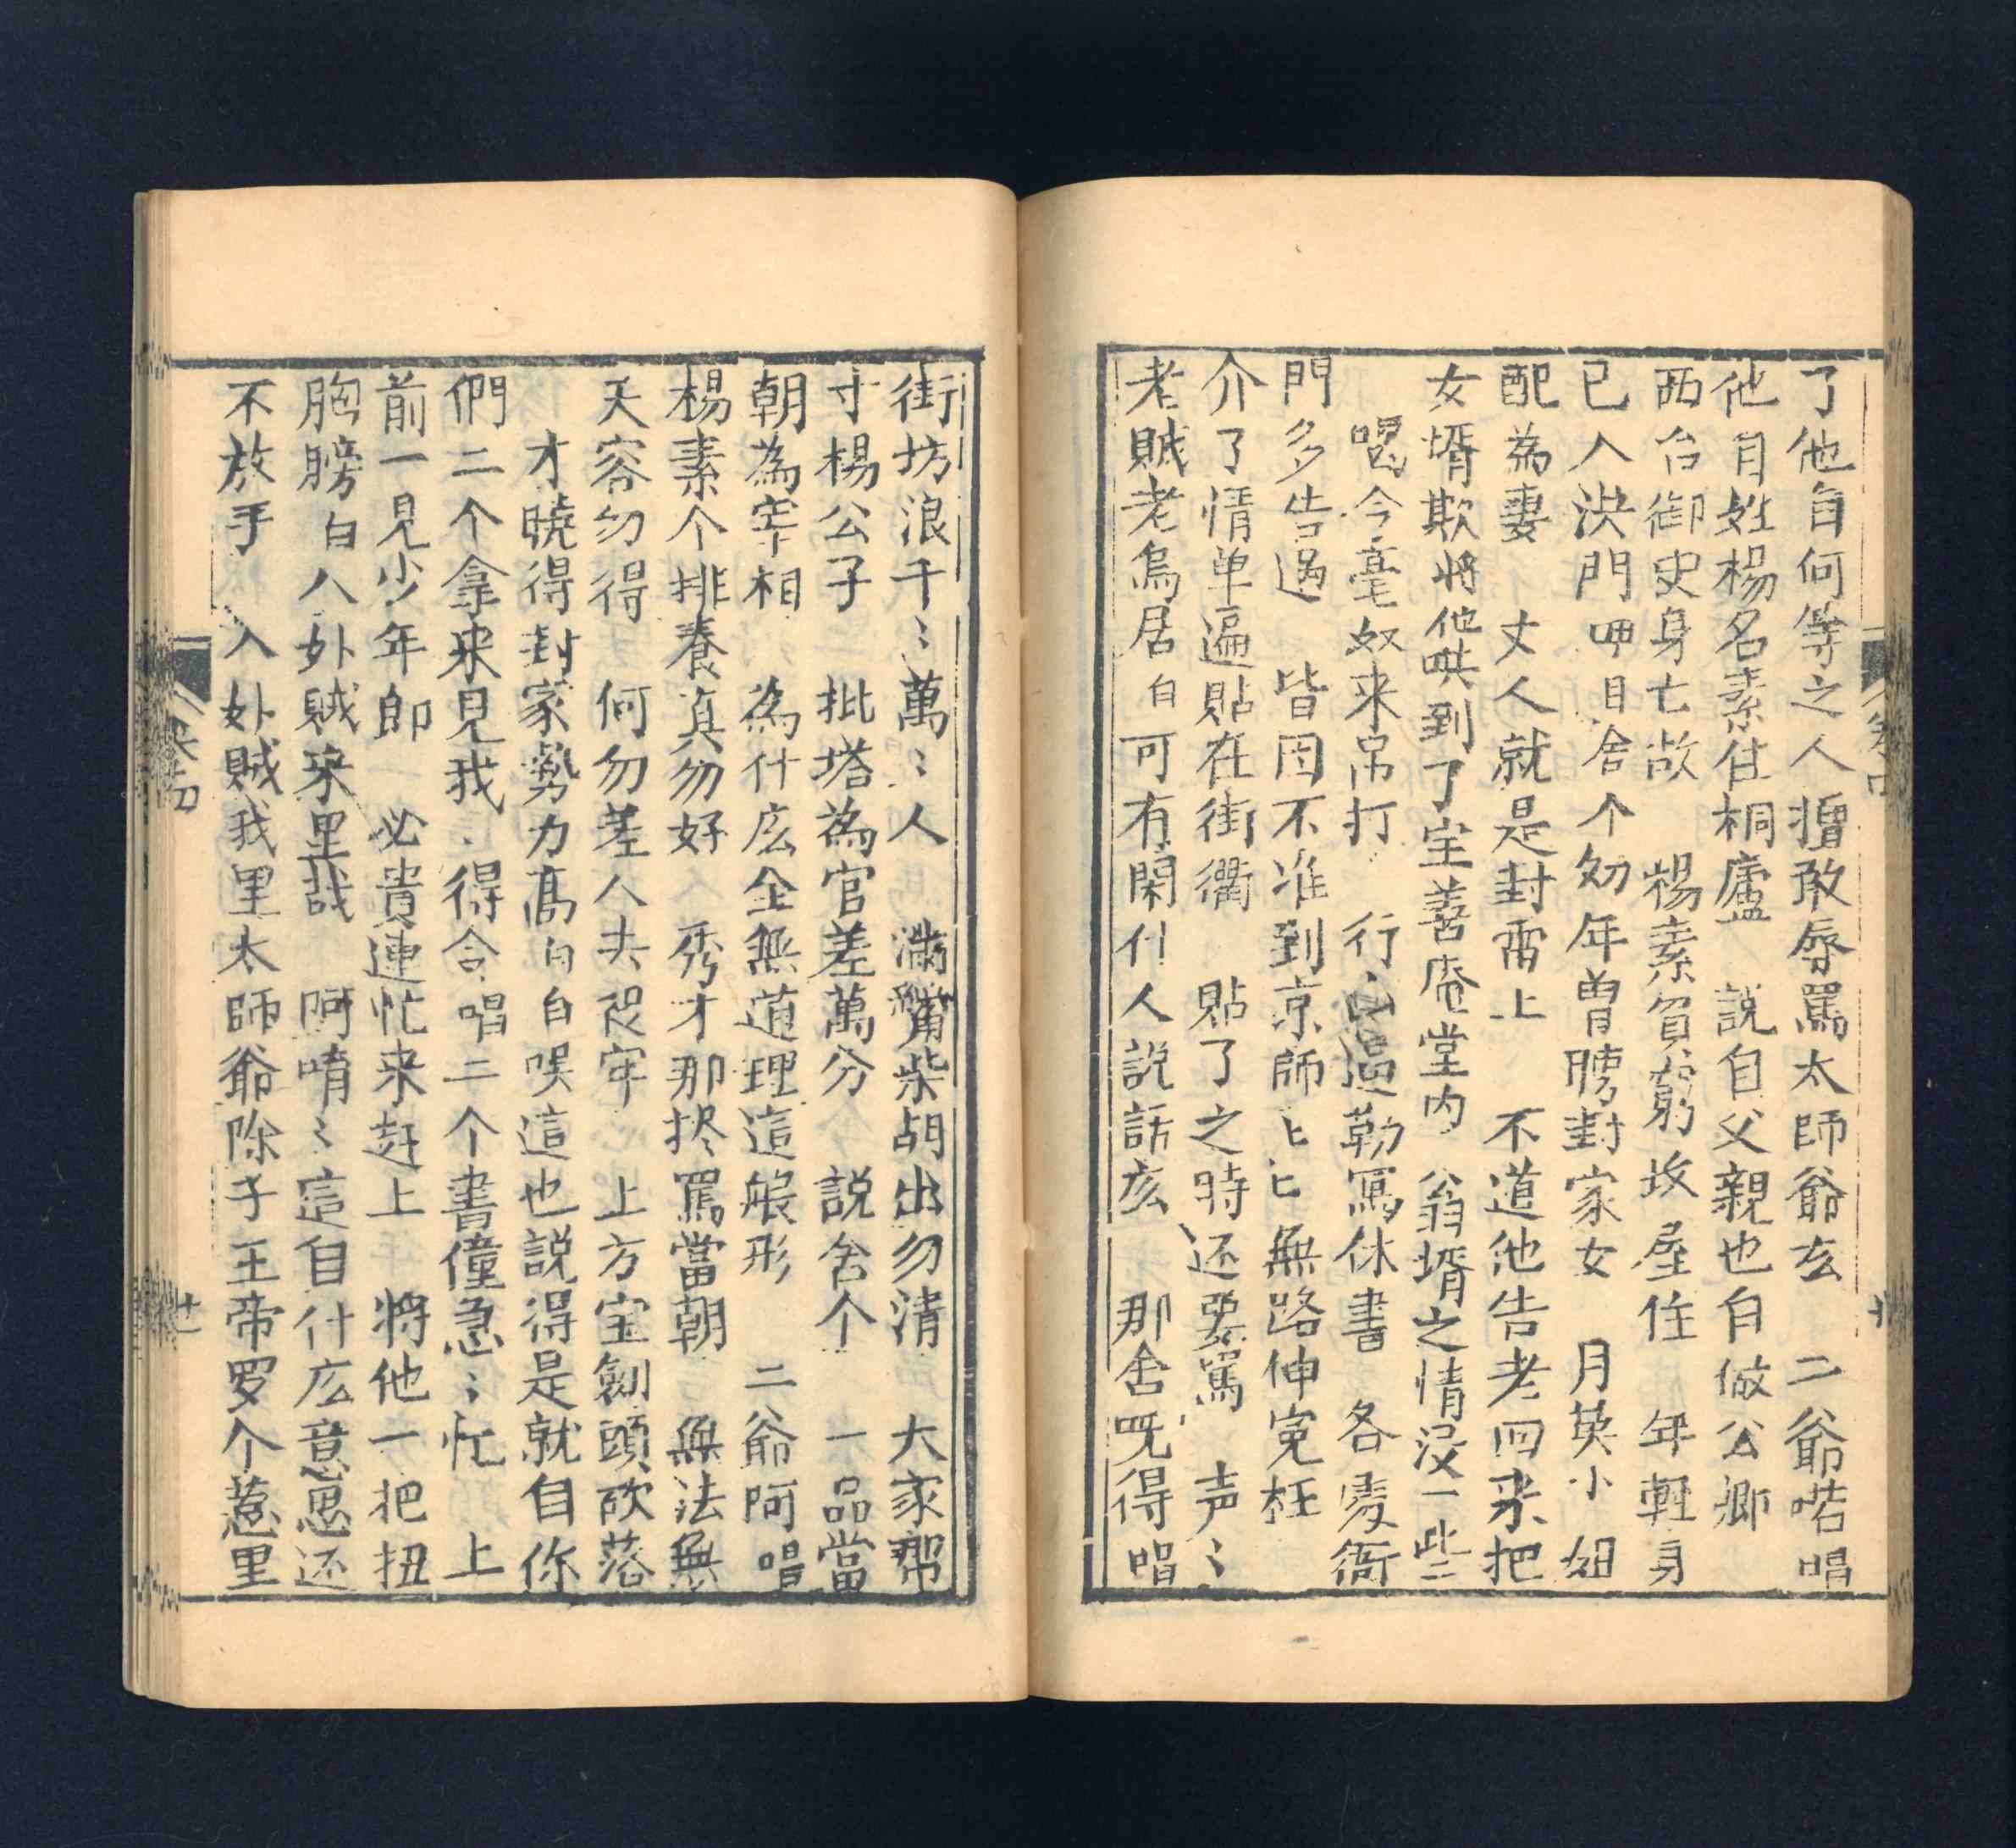 了他自何等之人擅敢辱罵太師爺玄　二爺喏唱
他自姓楊名素住桐廬　説自父親也自做公卿
西台御史身亡故　楊素貧窮坟屋住　年輕身
已入洪門呷自舍个　幼年曾聘封家女　月英小姐
配為妻　丈人就是封雷上　不道他告老回来把
女壻欺将他哄到了宝善庵堂内　翁壻之情没一些
喝令毫奴来吊打　行逼勒寫休書　各處衙
門多告遇　皆因不准到京師　無路伸寃枉
介了情单遍貼在街衢　貼了之時还要罵　声〻
老賊老烏居白可有閑什人説話庅　那舍既得唱
街坊浪千〻萬〻人　滿嘴柴胡出勿清　大家帮
寸楊公子　批塔為官差萬分　説舍个　一品當
朝為宰相　為什庅全無道理這般形　二爺阿唱
楊素个排養真勿好　秀才那拵罵當朝　無法無
天容勿得　何勿差人去捉牢　上方宝劍頭砍落
才曉得封家勢力髙白自唉這也説得是就自你
們二个拿来見我　得令唱二个書僮急〻忙　上
前一見少年郎　必貴連忙来赶上　将他一把扭
胸膀白八外賊来里哉　阿唷〻這自什庅意思还
不放手　入外賊我里太師爺除子王帝罗个惹里